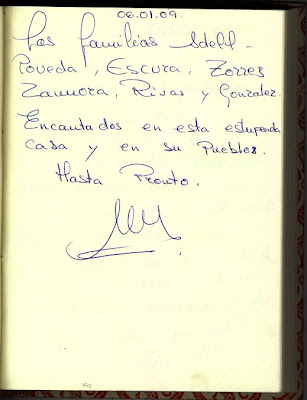 06.01.09.
Las familias Sdell -
Poveda, Escura, Zorres
Zamora, Rivas y Gonzalez.
Encantados en esta estupenda
casa y en su Pueblos.
Hasta Pronto.